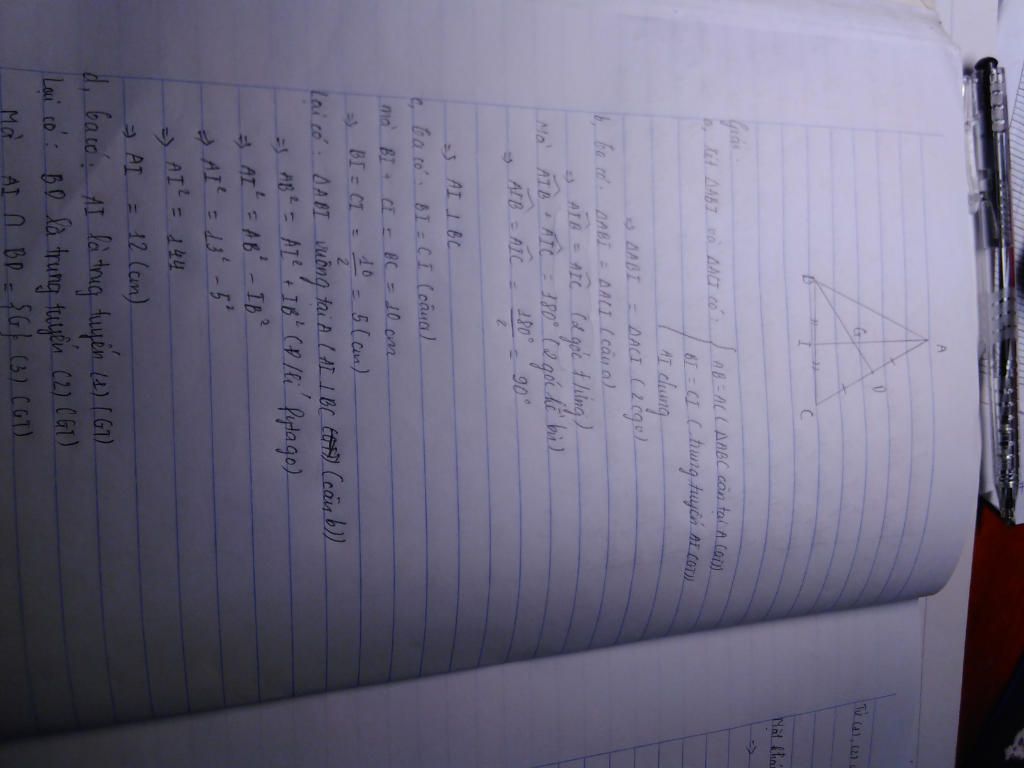 A
B
I
C
G
D
Giải:
a, Xét ΔABI và ΔACI có: AB = AC (ΔABC cân tại A (GT))
AI chung
BI = CI (trung tuyến AI (GT))
⇒ ΔABI = ΔACI (2cgv)
b, Ta có: ΔABI = ΔACI (câu a)
⇒ AIB = AIC (2 góc t/ứng)
Mà AIB + AIC = 180° (2 góc kề bù)
⇒ AIB = AIC = 180°/2 = 90°
⇒ AI ⊥ BC
c, Ta có: BI = CI (câu a)
mà BI + CI = BC = 10 cm
⇒ BI = CI = 10/2 = 5 (cm)
Lại có: ΔABI vuông tại A (AI ⊥ BC (câu b))
⇒ AB² = AI² + IB² (đ/lí Pytago)
⇒ AI² = AB² - IB²
⇒ AI² = 13² - 5²
⇒ AI² = 144
⇒ AI = 12 (cm)
d, Ta có: AI là trung tuyến (1) (GT)
Lại có: BD là trung tuyến (2) (GT)
Mà AI ∩ BD = {G} (3) (GT)
Từ (1), (2),